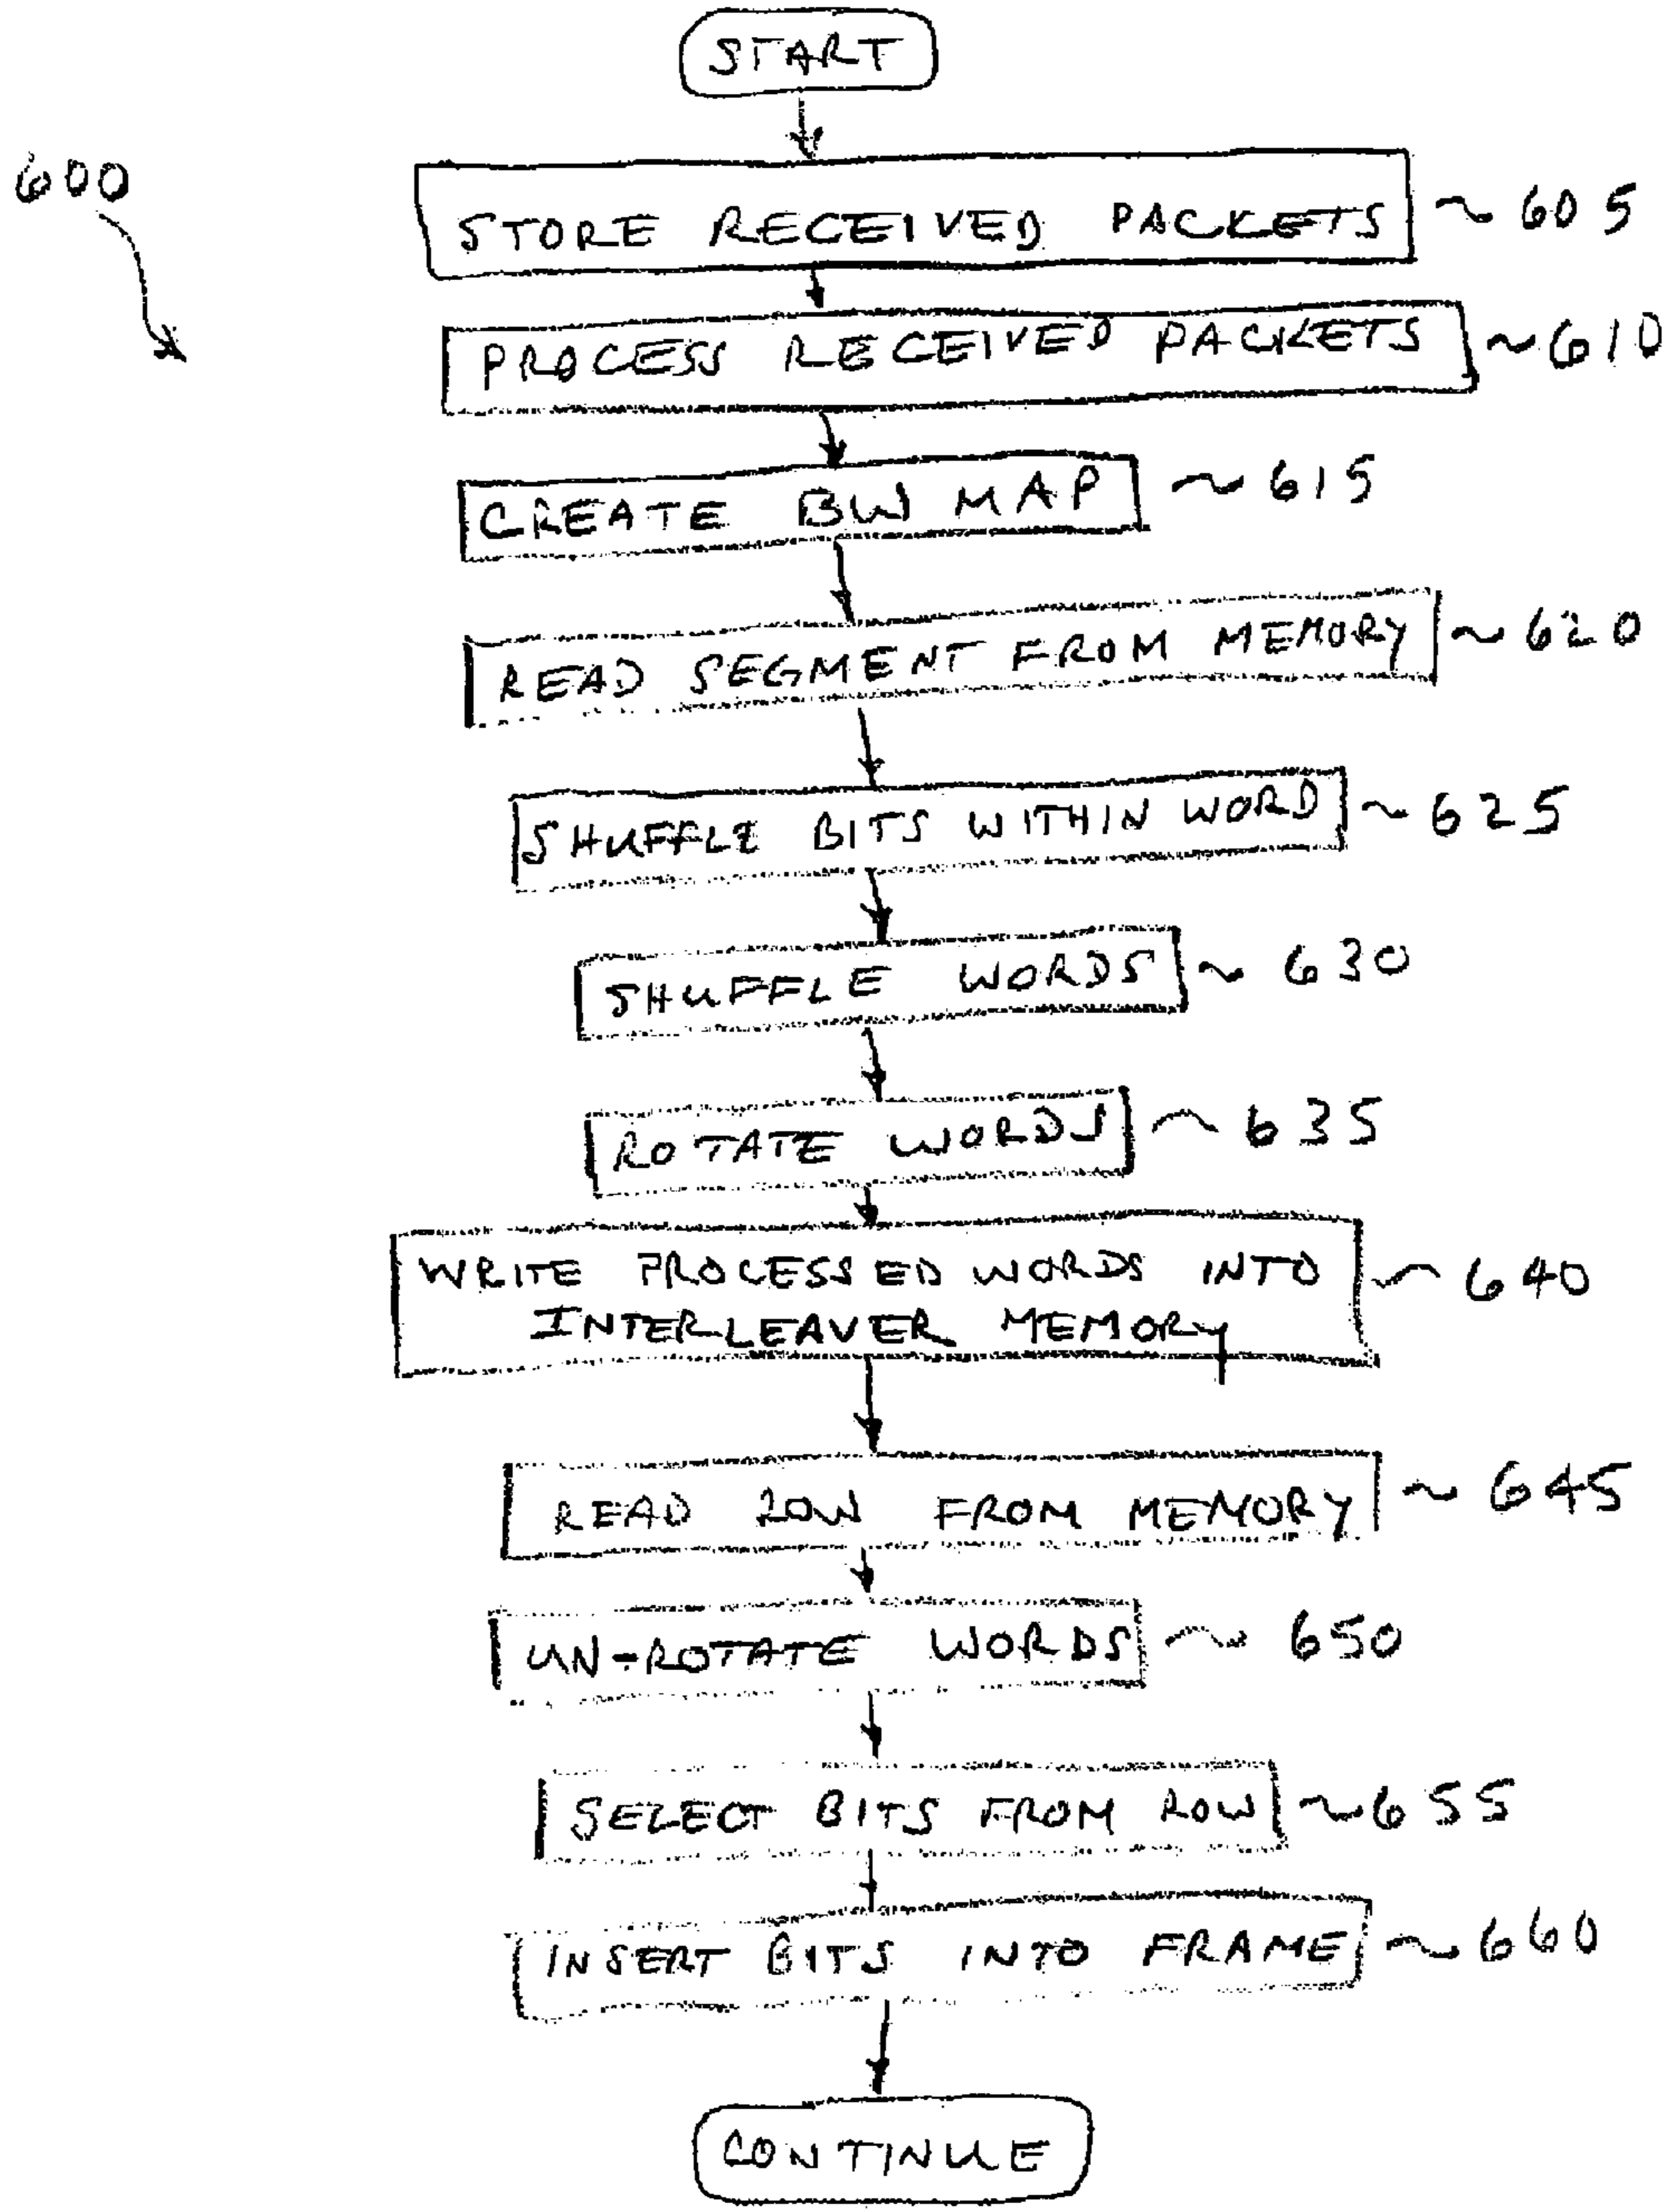 START
600
STORE RECEIVED PACKETS ~ 605
PROCESS RECEIVED PACKETS ~ 610
CREATE BW MAP ~ 615
READ SEGMENT FROM MEMORY ~ 620
SHUFFLE BITS WITHIN WORD ~ 625
SHUFFLE WORDS ~ 630
ROTATE WORDS ~ 635
WRITE PROCESSED WORDS INTO ~ 640
INTERLEAVER MEMORY
READ ROW FROM MEMORY ~ 645
UN-ROTATE WORDS ~ 650
SELECT BITS FROM ROW ~ 655
INSERT BITS INTO FRAME ~ 660
CONTINUE